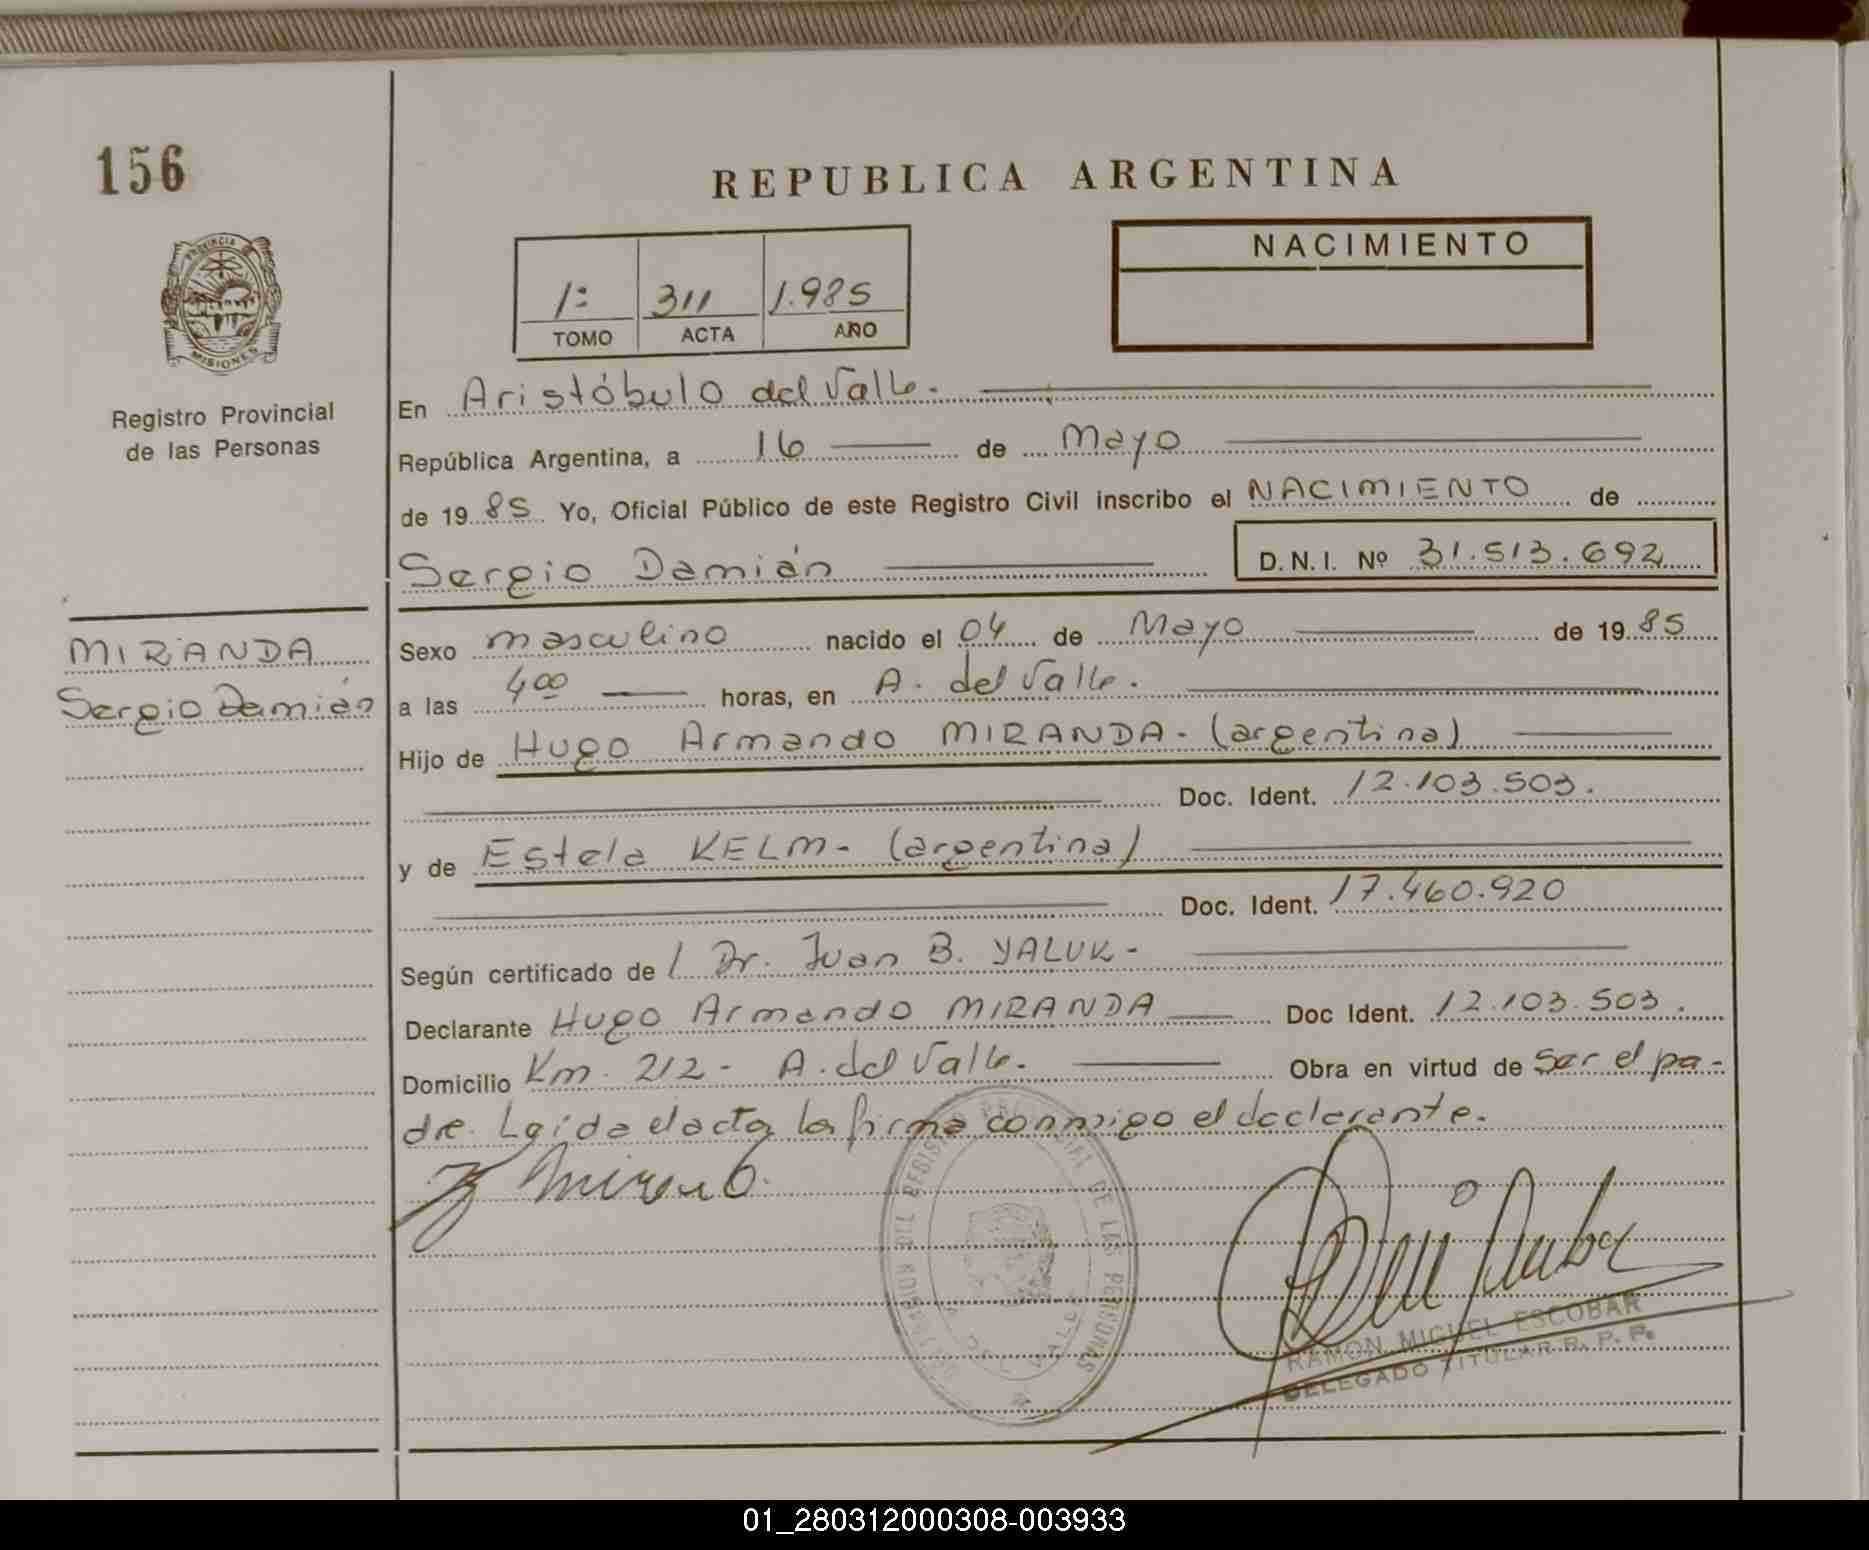 156
REPUBLICA ARGENTINA
PROVINCIA
MISIONES
Registro Provincial
de las Personas
1º 311 1.985
TOMO ACTA AÑO
NACIMIENTO
En Aristóbulo del Valle.
República Argentina, a 16 de Mayo
de 1985 Yo, Oficial Público de este Registro Civil inscribo el NACIMIENTO de
Sergio Damián D.N.I. Nº 31.513.692
MIRANDA
Sergio Damián
Sexo masculino nacido el 04 de Mayo de 1985
a las 4⁰⁰ horas, en A. del Valle.
Hijo de Hugo Armando MIRANDA- (argentina)
Doc. Ident. 12.103.503.
y de Estela KELM- (argentina)
Doc. Ident. 17.460.920
Según certificado de / Dr. Juan B. YALUK-
Declarante Hugo Armando MIRANDA Doc Ident. 12.103.503.
Domicilio Km. 212- A. del Valle. Obra en virtud de ser el pa-
dre. Leída el acta la firma conmigo el declarante.
DEL REGISTRO PROVINCIAL DE LAS PERSONAS
DEL VALLE
RAMON MIGUEL ESCOBAR
DELEGADO TITULAR R. P. P.
01_280312000308-003933